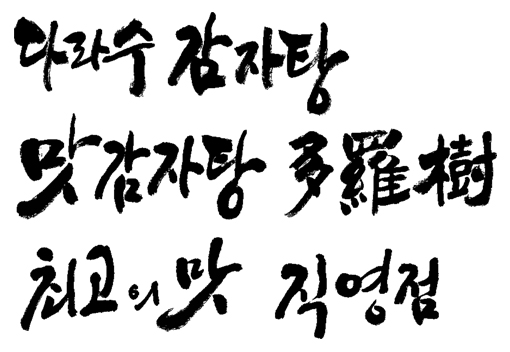 다라수 감자탕
맛감자탕 多羅樹
최고의 맛 직영점